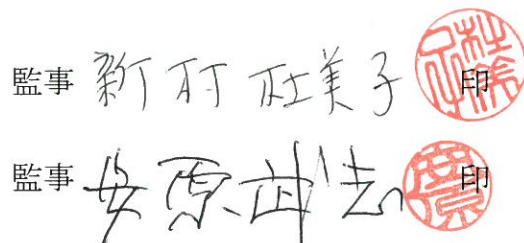 監事 新村社美子 印
監事 安原武志 印